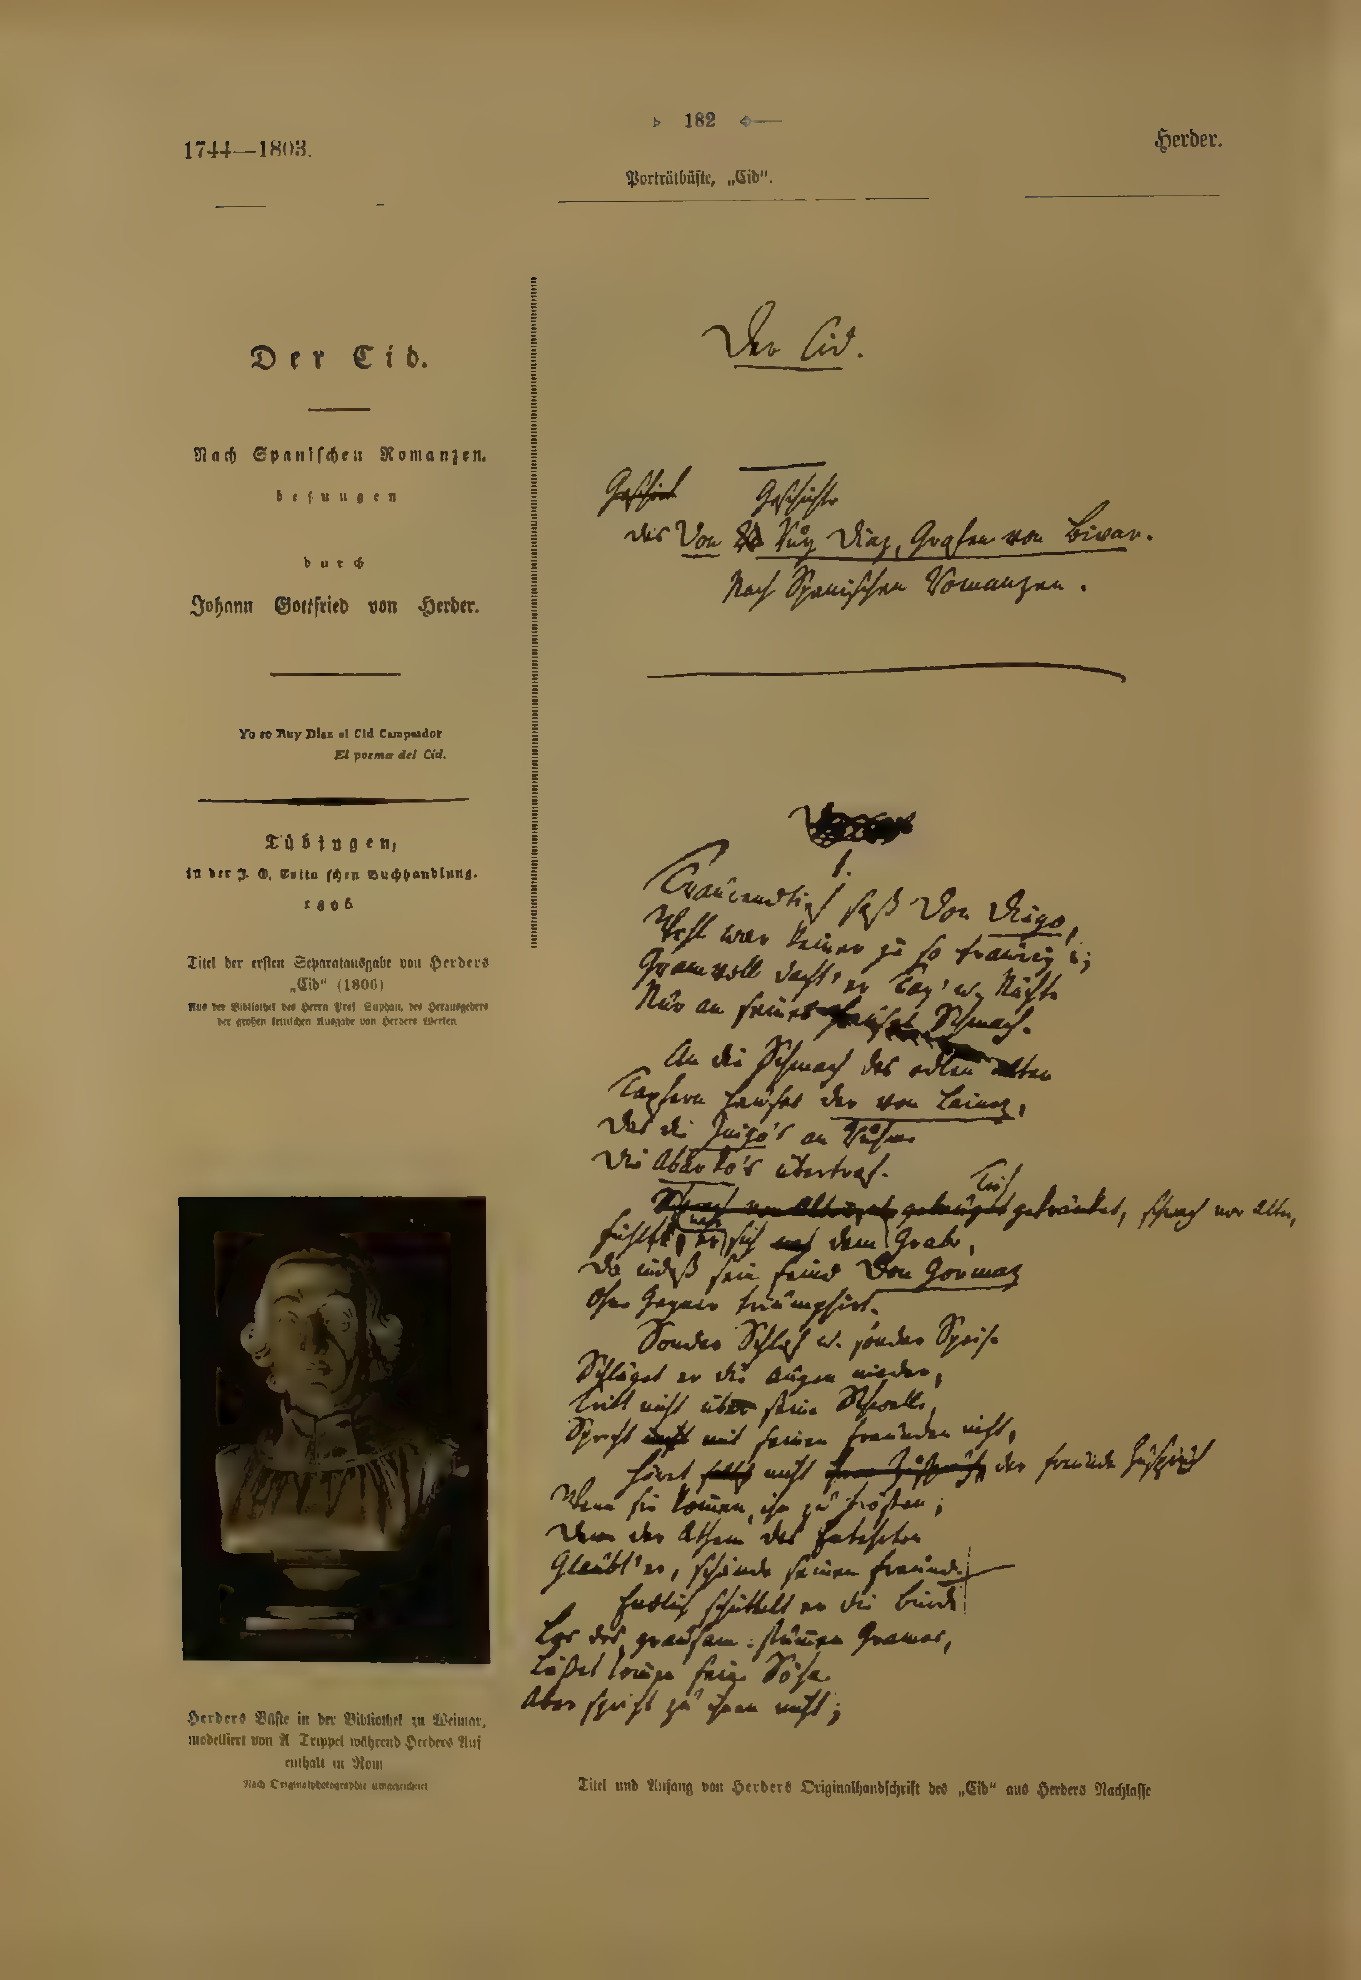 182
1744—1803.
Herder.
Porträtbüste, „Cid“.
Der Cid.
Nach Spanischen Romanzen.
besungen
durch
Johann Gottfried von Herder.
Yo so Ruy Diaz el Cid Campeador
El poema del Cid.
Tübingen,
in der J. G. Cotta'schen Buchhandlung.
1806
Titel der ersten Separatausgabe von Herders
„Cid“ (1806)
Aus der Bibliothek des Herrn Prof. Suphan, des Herausgebers
der großen kritischen Ausgabe von Herders Werken
Herders Büste in der Bibliothek zu Weimar,
modelliert von A Trippel während Herders Auf
enthalt in Rom
Nach Originalphotographie umgezeichnet
Der Cid.
Geschichte
des Don Ruy Diaz, Grafen von Bivar.
Nach Spanischen Romanzen.
1.
Traurendtief saß Don Diego,
Wohl war keiner je so traurig;
Gramvoll dacht' er Tag' u. Nächte
Nur an seines Hauses Schmach.
An die Schmach des edlen alten
Tapfern Hauses der von Lainez,
Das die Inigo's an Ruhme
Die Abarko's übertraf.
Tief gekränket, schwach vor Alter,
Fühlt er sich nah dem Grabe,
Da indeß sein Feind Don Gormaz
Ohne Gegner triumphirt.
Sonder Schlaf u. sonder Speise
Schläget er die Augen nieder,
Tritt nicht über seine Schwelle,
Spricht mit seinen Freunden nicht,
Höret nicht der Freunde Zuspruch
Wenn sie kommen, ihn zu trösten;
Denn der Athem des Entehrten
Glaubt' er, schände seinen Freund.
Endlich schüttelt er die Bürde
Los des grausam-stummen Grames,
Lässet kommen seine Söhne
Aber spricht zu ihnen nicht;
Titel und Anfang von Herders Originalhandschrift des „Cid“ aus Herders Nachlasse